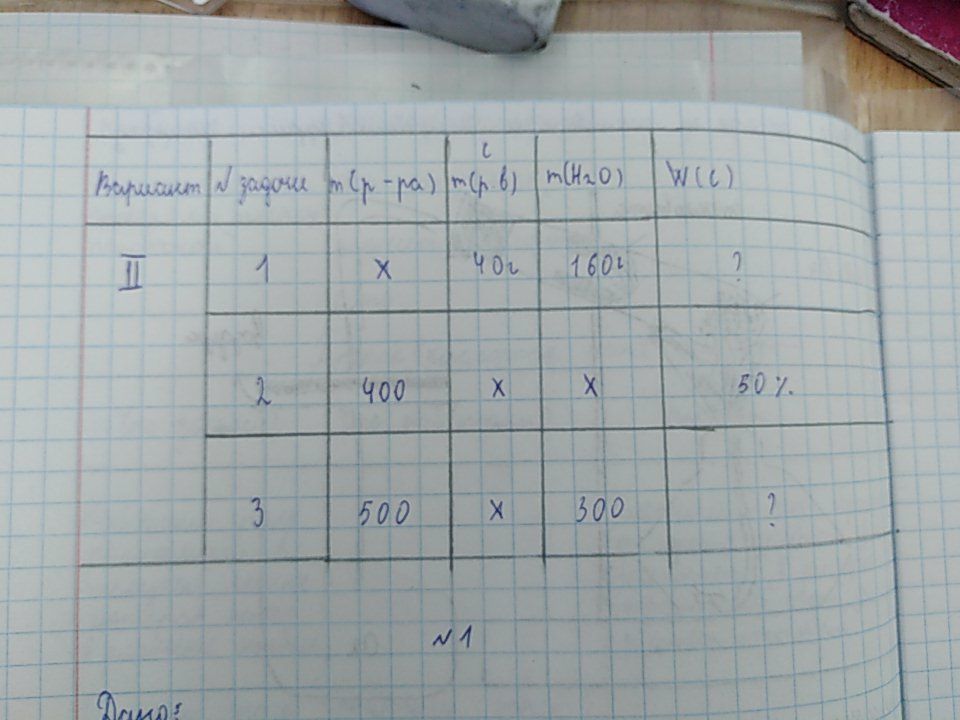 с
Вариант № задачи m(р-ра) m(р.в) m(H2O) W(с)
II 1 x 40г 160г ?
2 400 x x 50%
3 500 x 300 ?
№1
Дано: